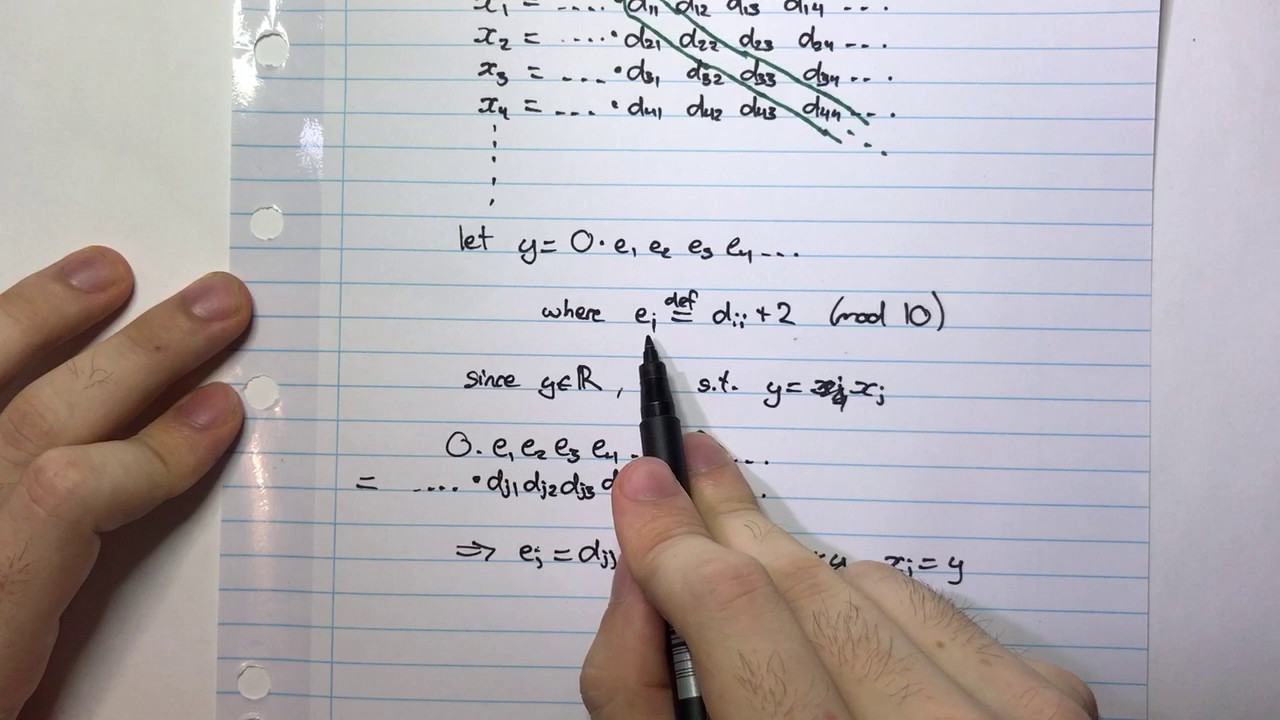 x₁ = ....·d₁₁ d₁₂ d₁₃ d₁₄ ...
x₂ = ....·d₂₁ d₂₂ d₂₃ d₂₄ ...
x₃ = ....·d₃₁ d₃₂ d₃₃ d₃₄ ...
x₄ = ....·d₄₁ d₄₂ d₄₃ d₄₄ ...
let y = 0·e₁ e₂ e₃ e₄ ...
where eᵢ ≝ dᵢᵢ + 2 (mod 10)
since y∈ℝ, s.t. y = xⱼ
0.e₁e₂e₃e₄ ...
= ....·dⱼ₁dⱼ₂dⱼ₃
⇒ eⱼ = dⱼⱼ xⱼ = y